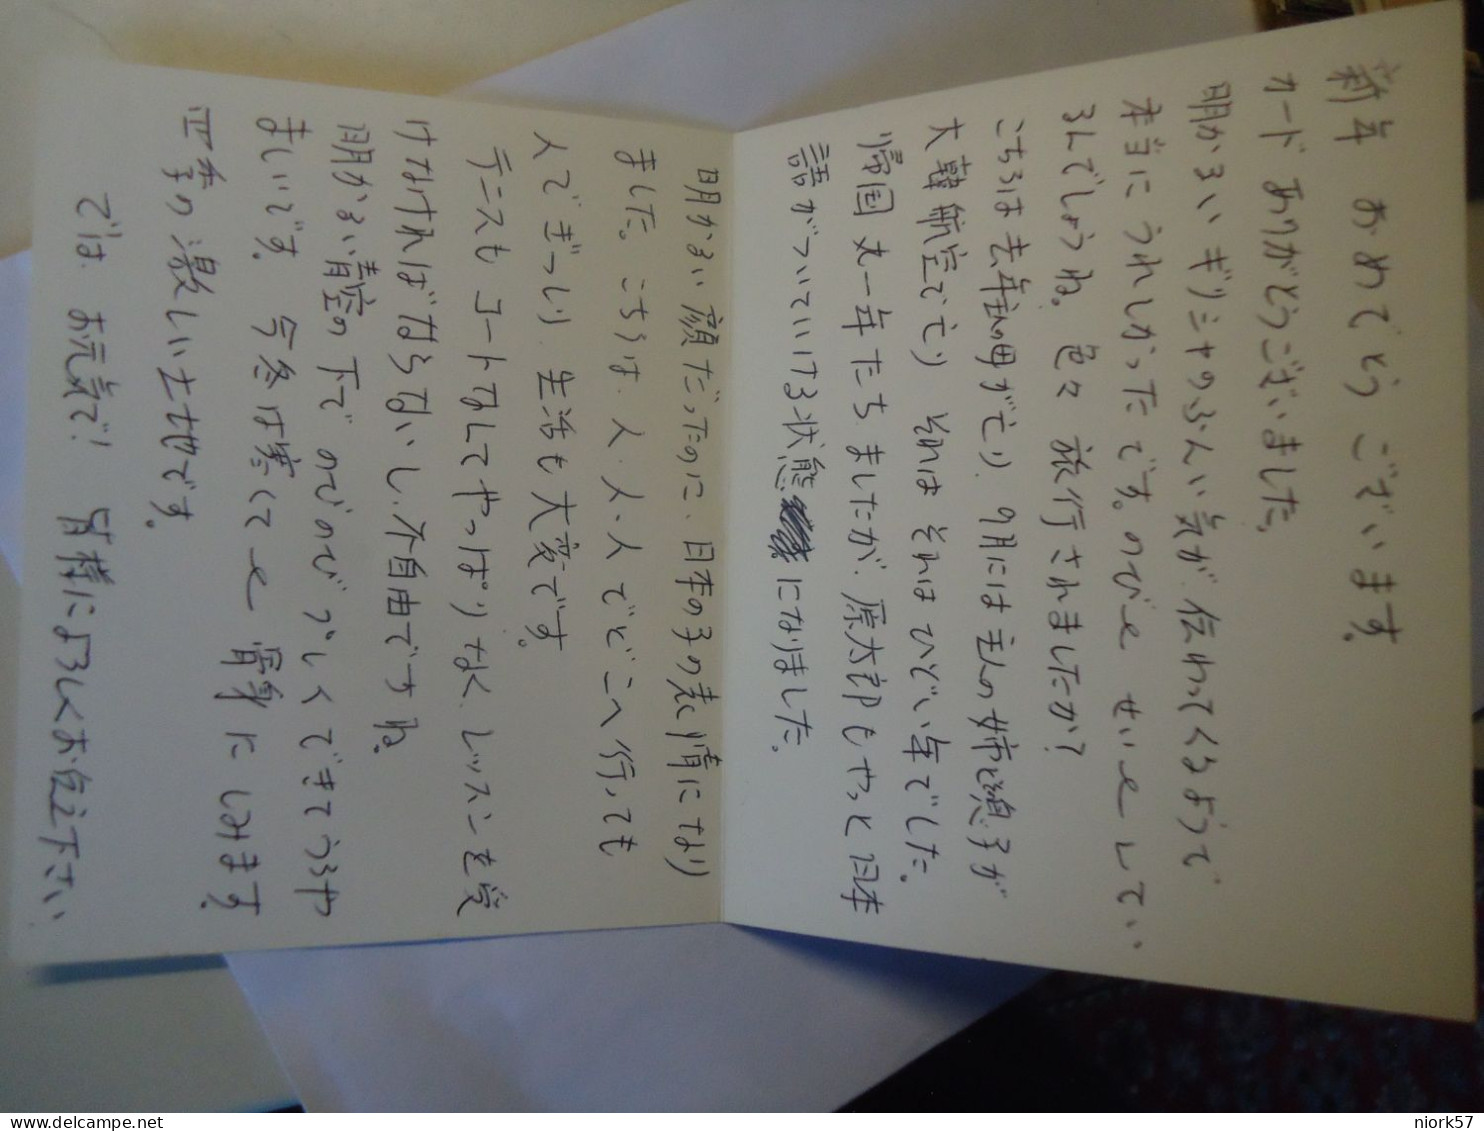 新年 おめでとう ございます。
カード ありがとうございました。
明かるい ギリシャのふんい気が 伝わってくるようで
本当に うれしかったです。のびのび せいせいしてい
るんでしょうね。色々 旅行されましたか?
こちらは去年主人の母が亡り、9月には主人の姉と憩子が
大韓航空で亡り それは それは ひどい年でした。
帰国 丸一年たち ましたが、原太郎もやっと日本
語がついていける状態になりました。
明かるい顔だったのに、日本の子の表情になり
ました。こちらは、人・人・人でどこへ行っても
人でぎっしり、生活も大変です。
テニスも コートなしてやっぱりなく、レッスンを受
けなければならないし、不自由ですね。
明かるい青空の下で のびのび プレイできてうらや
ましいです。今冬は寒くて 骨身にしみます。
四季の激しい土地です。
では お元気で! 皆様によろしくお伝え下さい
delcampe.net
niork57